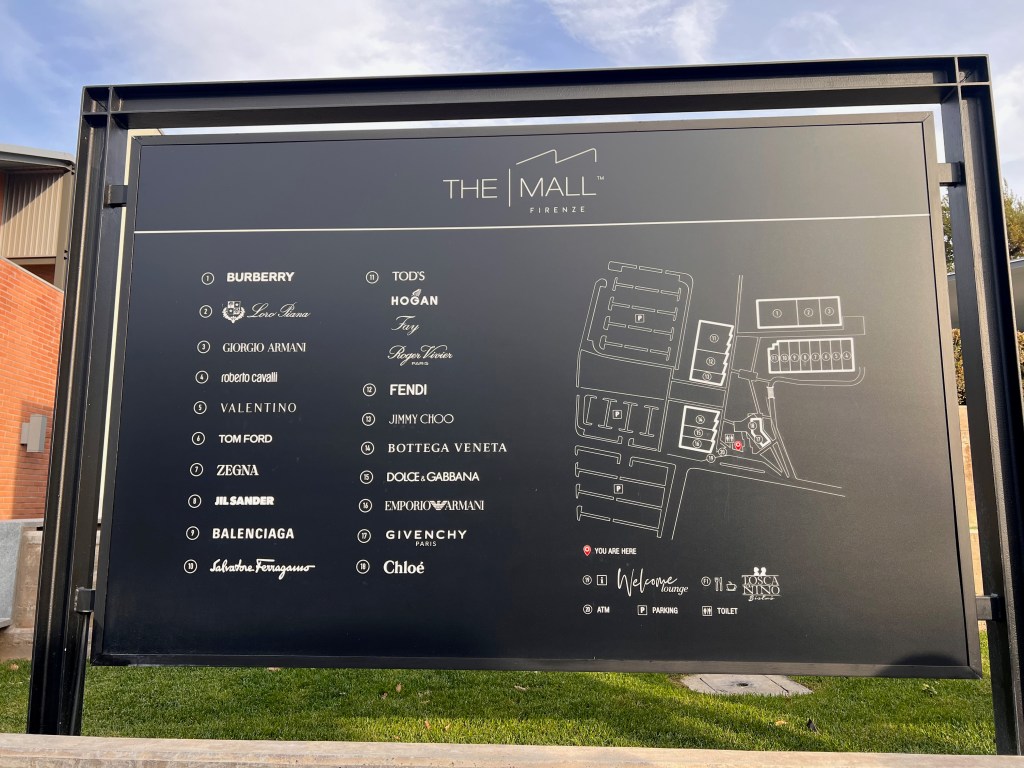 THE MALL™
FIRENZE
1 BURBERRY
2 Loro Piana
3 GIORGIO ARMANI
4 roberto cavalli
5 VALENTINO
6 TOM FORD
7 ZEGNA
8 JIL SANDER
9 BALENCIAGA
10 Salvatore Ferragamo
11 TOD'S
HOGAN
Fay
Roger Vivier
PARIS
12 FENDI
13 JIMMY CHOO
14 BOTTEGA VENETA
15 DOLCE & GABBANA
16 EMPORIO ARMANI
17 GIVENCHY
PARIS
18 Chloé
1 2 3
11
12
13
P
10 9 8 7 6 5 4
14
15
16
P
P
YOU ARE HERE
19 i Welcome
lounge
21 TOSCA
NINO
Bistrò
20 ATM P PARKING TOILET